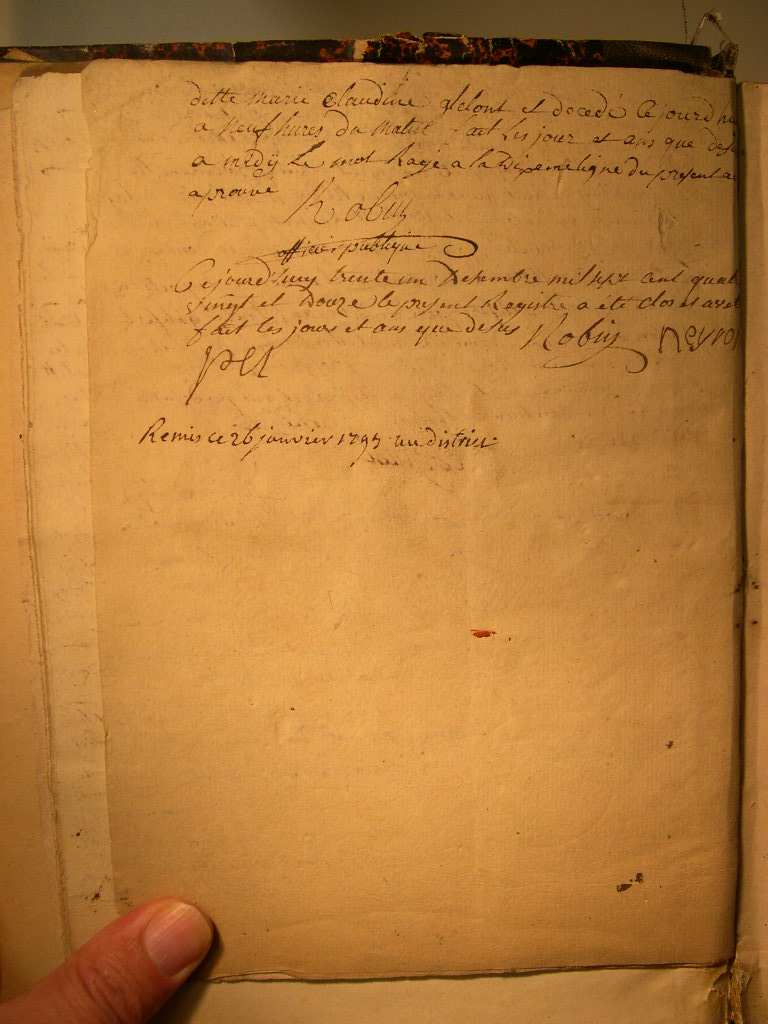 ditte marie Claudine et decedé Cejourdhu
a neuf hures du matit fait Les jour et ans que desu
a midy Le mot Rayé a la Dixemeligne du present a
aprouvé
Robin
officier publique
Cejourdhuy trente un Desembre mil sept cent quat
vingt et Douze le present Registre a été Clos et aret
fait les jours et ans que desus Robin neyro
Remis ce 26 janvier 1793 au district